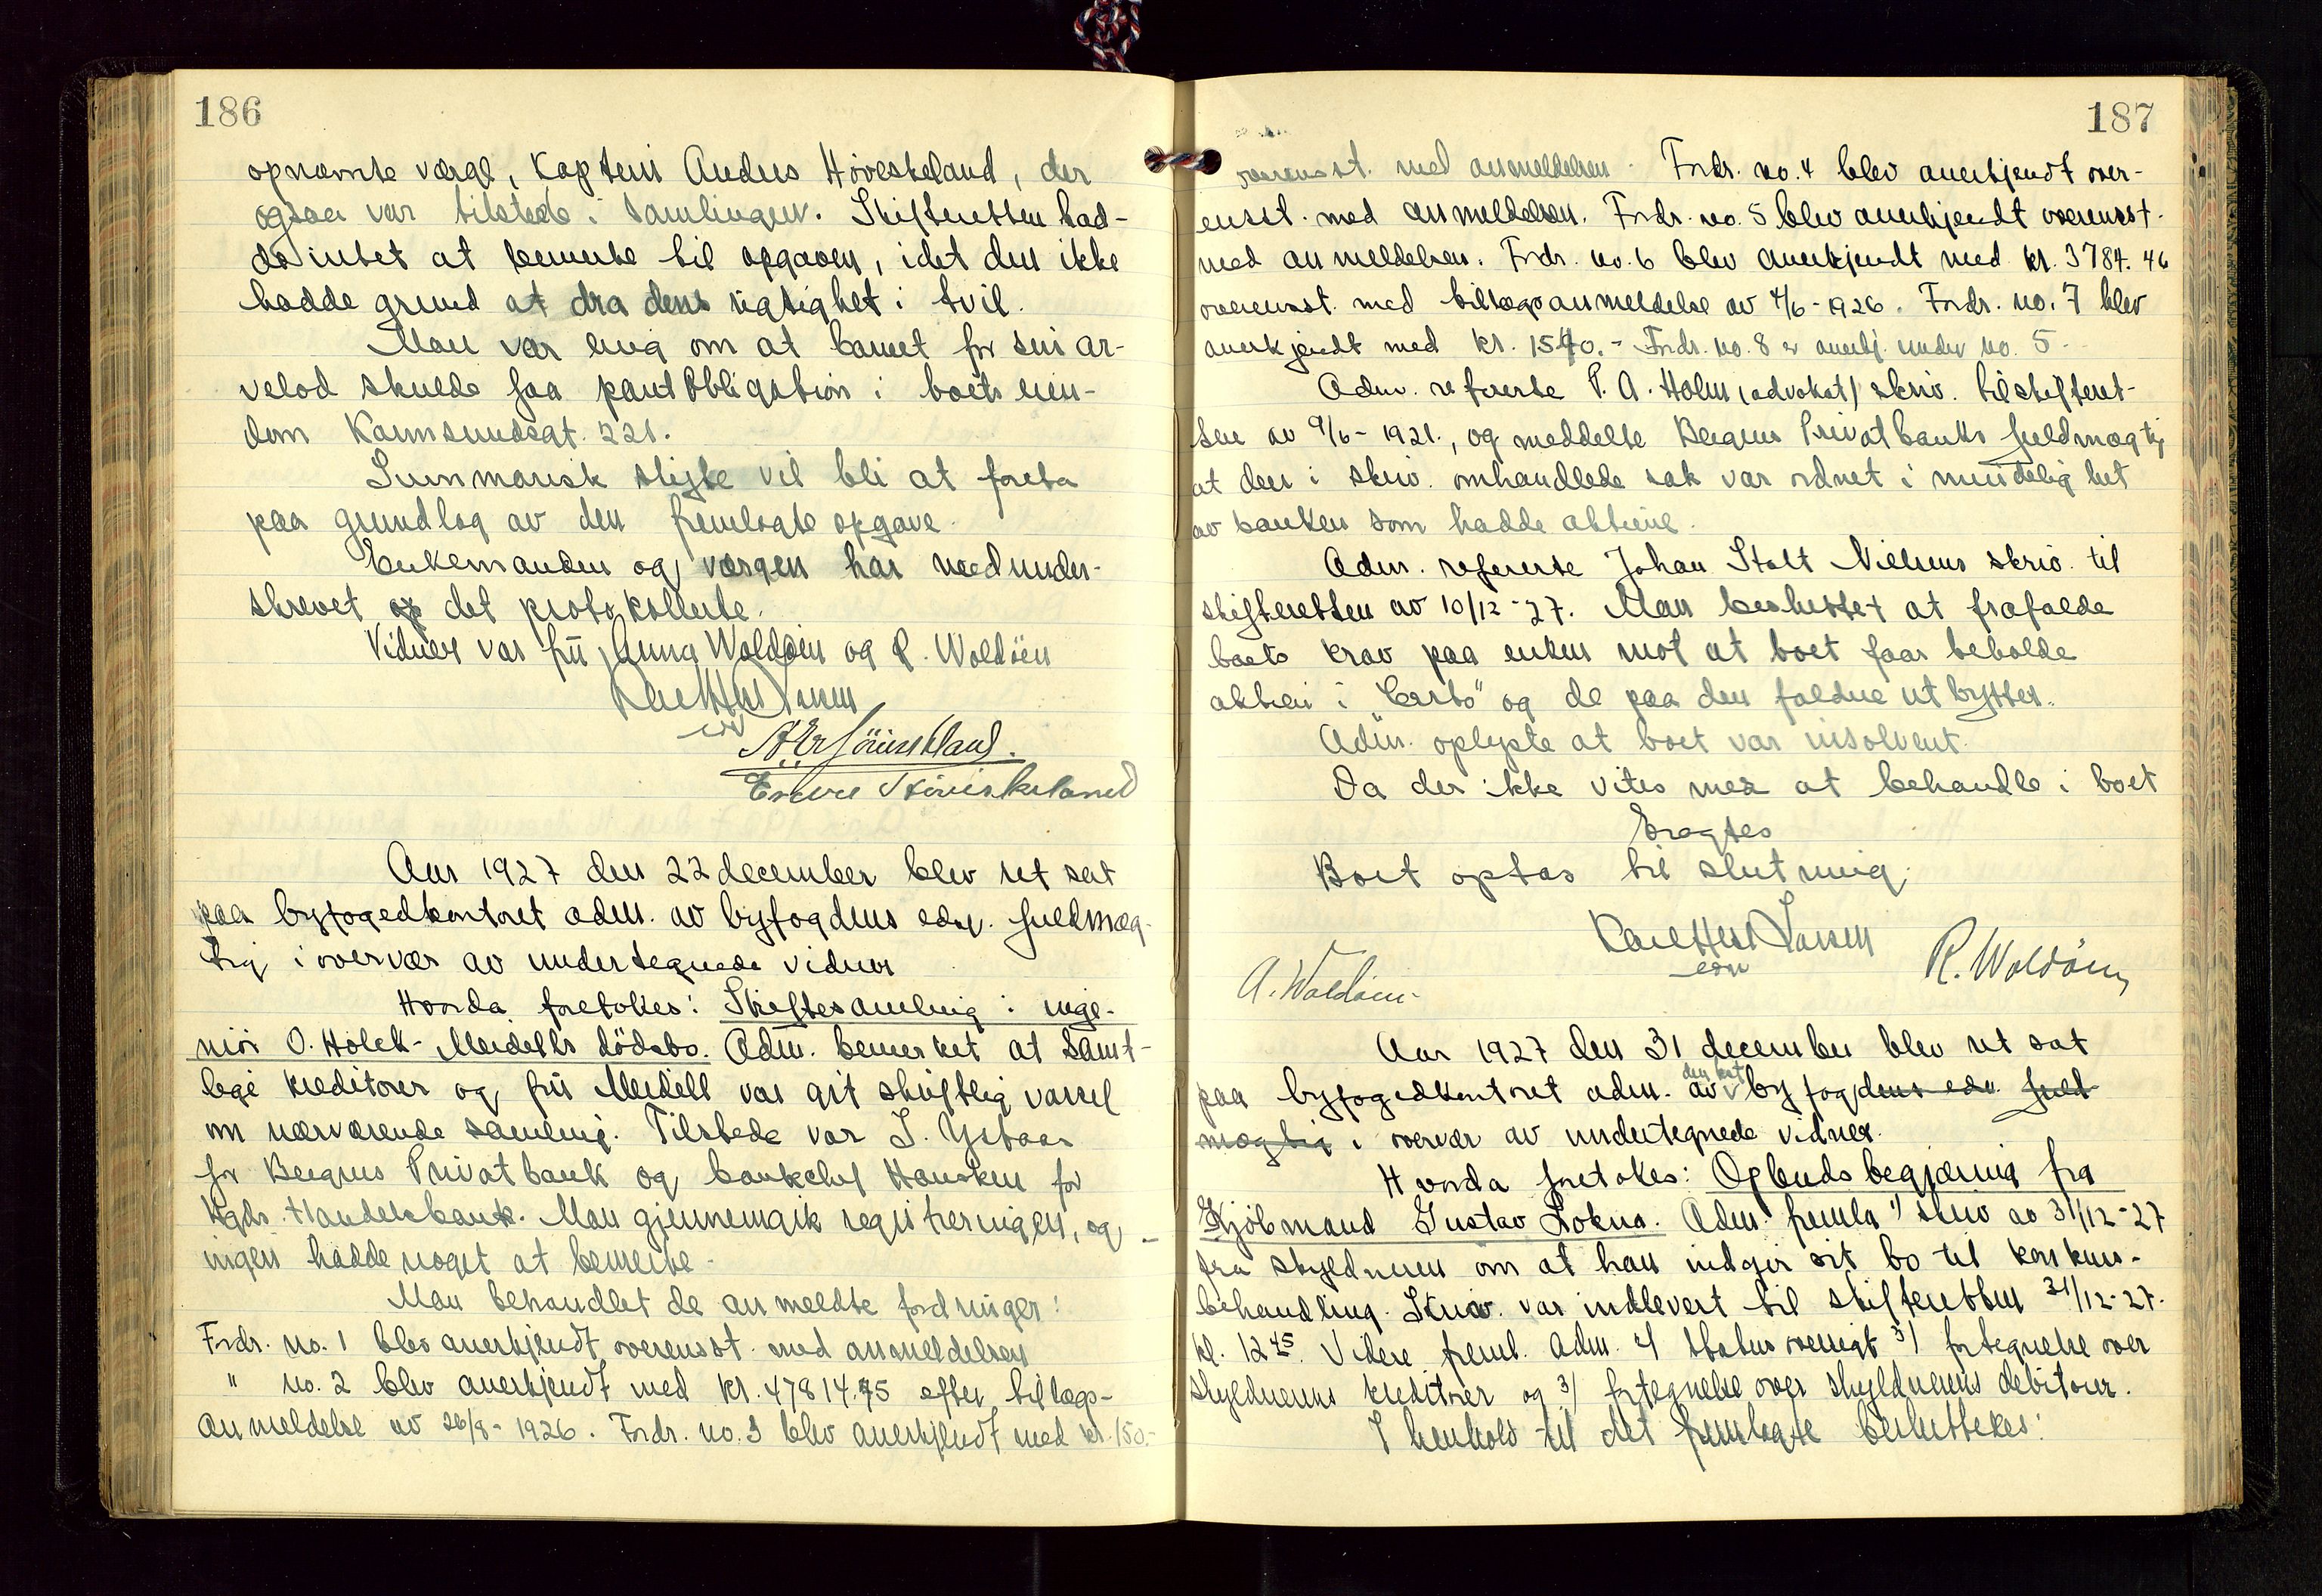 186
opnævnte værge, Kaptein Andus Höveskeland, der
ogsaa var tilstede i samlingen. Skifteretten had-
de intet at bemerke til opgaven, idet den ikke
hadde grund at dra dens rigtighet i tvil.
Man var enig om at barnet for sin ar-
velod skulde faa pantobligation i boets eien-
dom Karmsundsgt. 221.
Summarisk skifte vil bli at foreta
paa grundlag av den fremlagte opgave.
Enkemanden og værgen har medunder-
skrevet det protokollerte.
Vidner var frk Anna Waldöen og R. Woldöen

Aar 1927 den 22 december blev ret sat
paa byfogedkontoret adm. av byfogdens edsv. fuldmæg-
tig i overvær av undertegnede vidner
Hvorda foretokes: Skiftesamling i inge-
niör O. Holck-Meidells dödsbo. Adm. bemerket at samt-
lige kreditorer og fru Meidell var git skriftlig varsel
om nærværende samling. Tilstede var I. Ystaas
for Bergens Privatbank og bankchef Hansken for
Hgds. Handelsbank. Man gjennemgik registreringen, og
ingen hadde noget at bemerke.
Man behandlet de anmeldte fordringer:
Fordr. no. 1 blev anerkjendt overensst. med anmeldelsen
" no. 2 blev anerkjendt med kr. 47814.75 efter tillægs-
anmeldelse av 26/8-1926. Fordr. no. 3 blev anerkjendt med kr. 150.-
187
overensst. med anmeldelsen. Fordr. no. 4 blev anerkjendt over-
ensst. med anmeldelsen. Fordr. no. 5 blev anerkjendt overensst.
med anmeldelsen. Fordr. no. 6 blev anerkjendt med kr. 3784.46
overensst. med tillægsanmeldelse av 4/6-1926. Fordr. no. 7 blev
anerkjendt med kr. 1540.- Fordr. no. 8 er anerkj. under no. 5.
Adm. refererte P. A. Holm (advokat) skriv. til skifteret-
ten av 9/6-1921., og meddelte Bergens Privatbanks fuldmægtig
at den i skriv. omhandlede sak var ordnet i mindelighet
av banken som hadde aktiene.
Adm. refererte Johan Stolt Nielsens skriv. til
skifteretten av 10/12-27. Man besluttet at frafalde
boets krav paa enken mot at boet faar beholde
aktien i "Certo" og de paa den faldne utbytter.
Adm. oplyste at boet var insolvent.
Da der ikke vites mer at behandle i boet
Eragtes
Boet optas til slutning.
Karl Hess Larsen
esv
A. Waldöen
R. Woldöen
Aar 1927 den 31 december blev ret sat
paa byfogedkontoret adm. av den kst byfogdens edsv. fuld-
mægtig i overvær av undertegnede vidner.
Hvorda foretokes: Opbudsbegjæring fra
Kjöbmand Gustav Lokna. Adm. fremla 1) skriv av 31/12-27
fra skyldneren om at han indgir sit bo til konkurs-
behandling. Skriv. var indlevert til skifteretten 31/12-27.
kl. 12 45. Videre freml. adm. 2) status oversigt 3) fortegnelse over
skyldnerens kreditorer og 3) fortegnelse over skyldnerens debitorer.
I henhold til det fremlagte besluttedes: